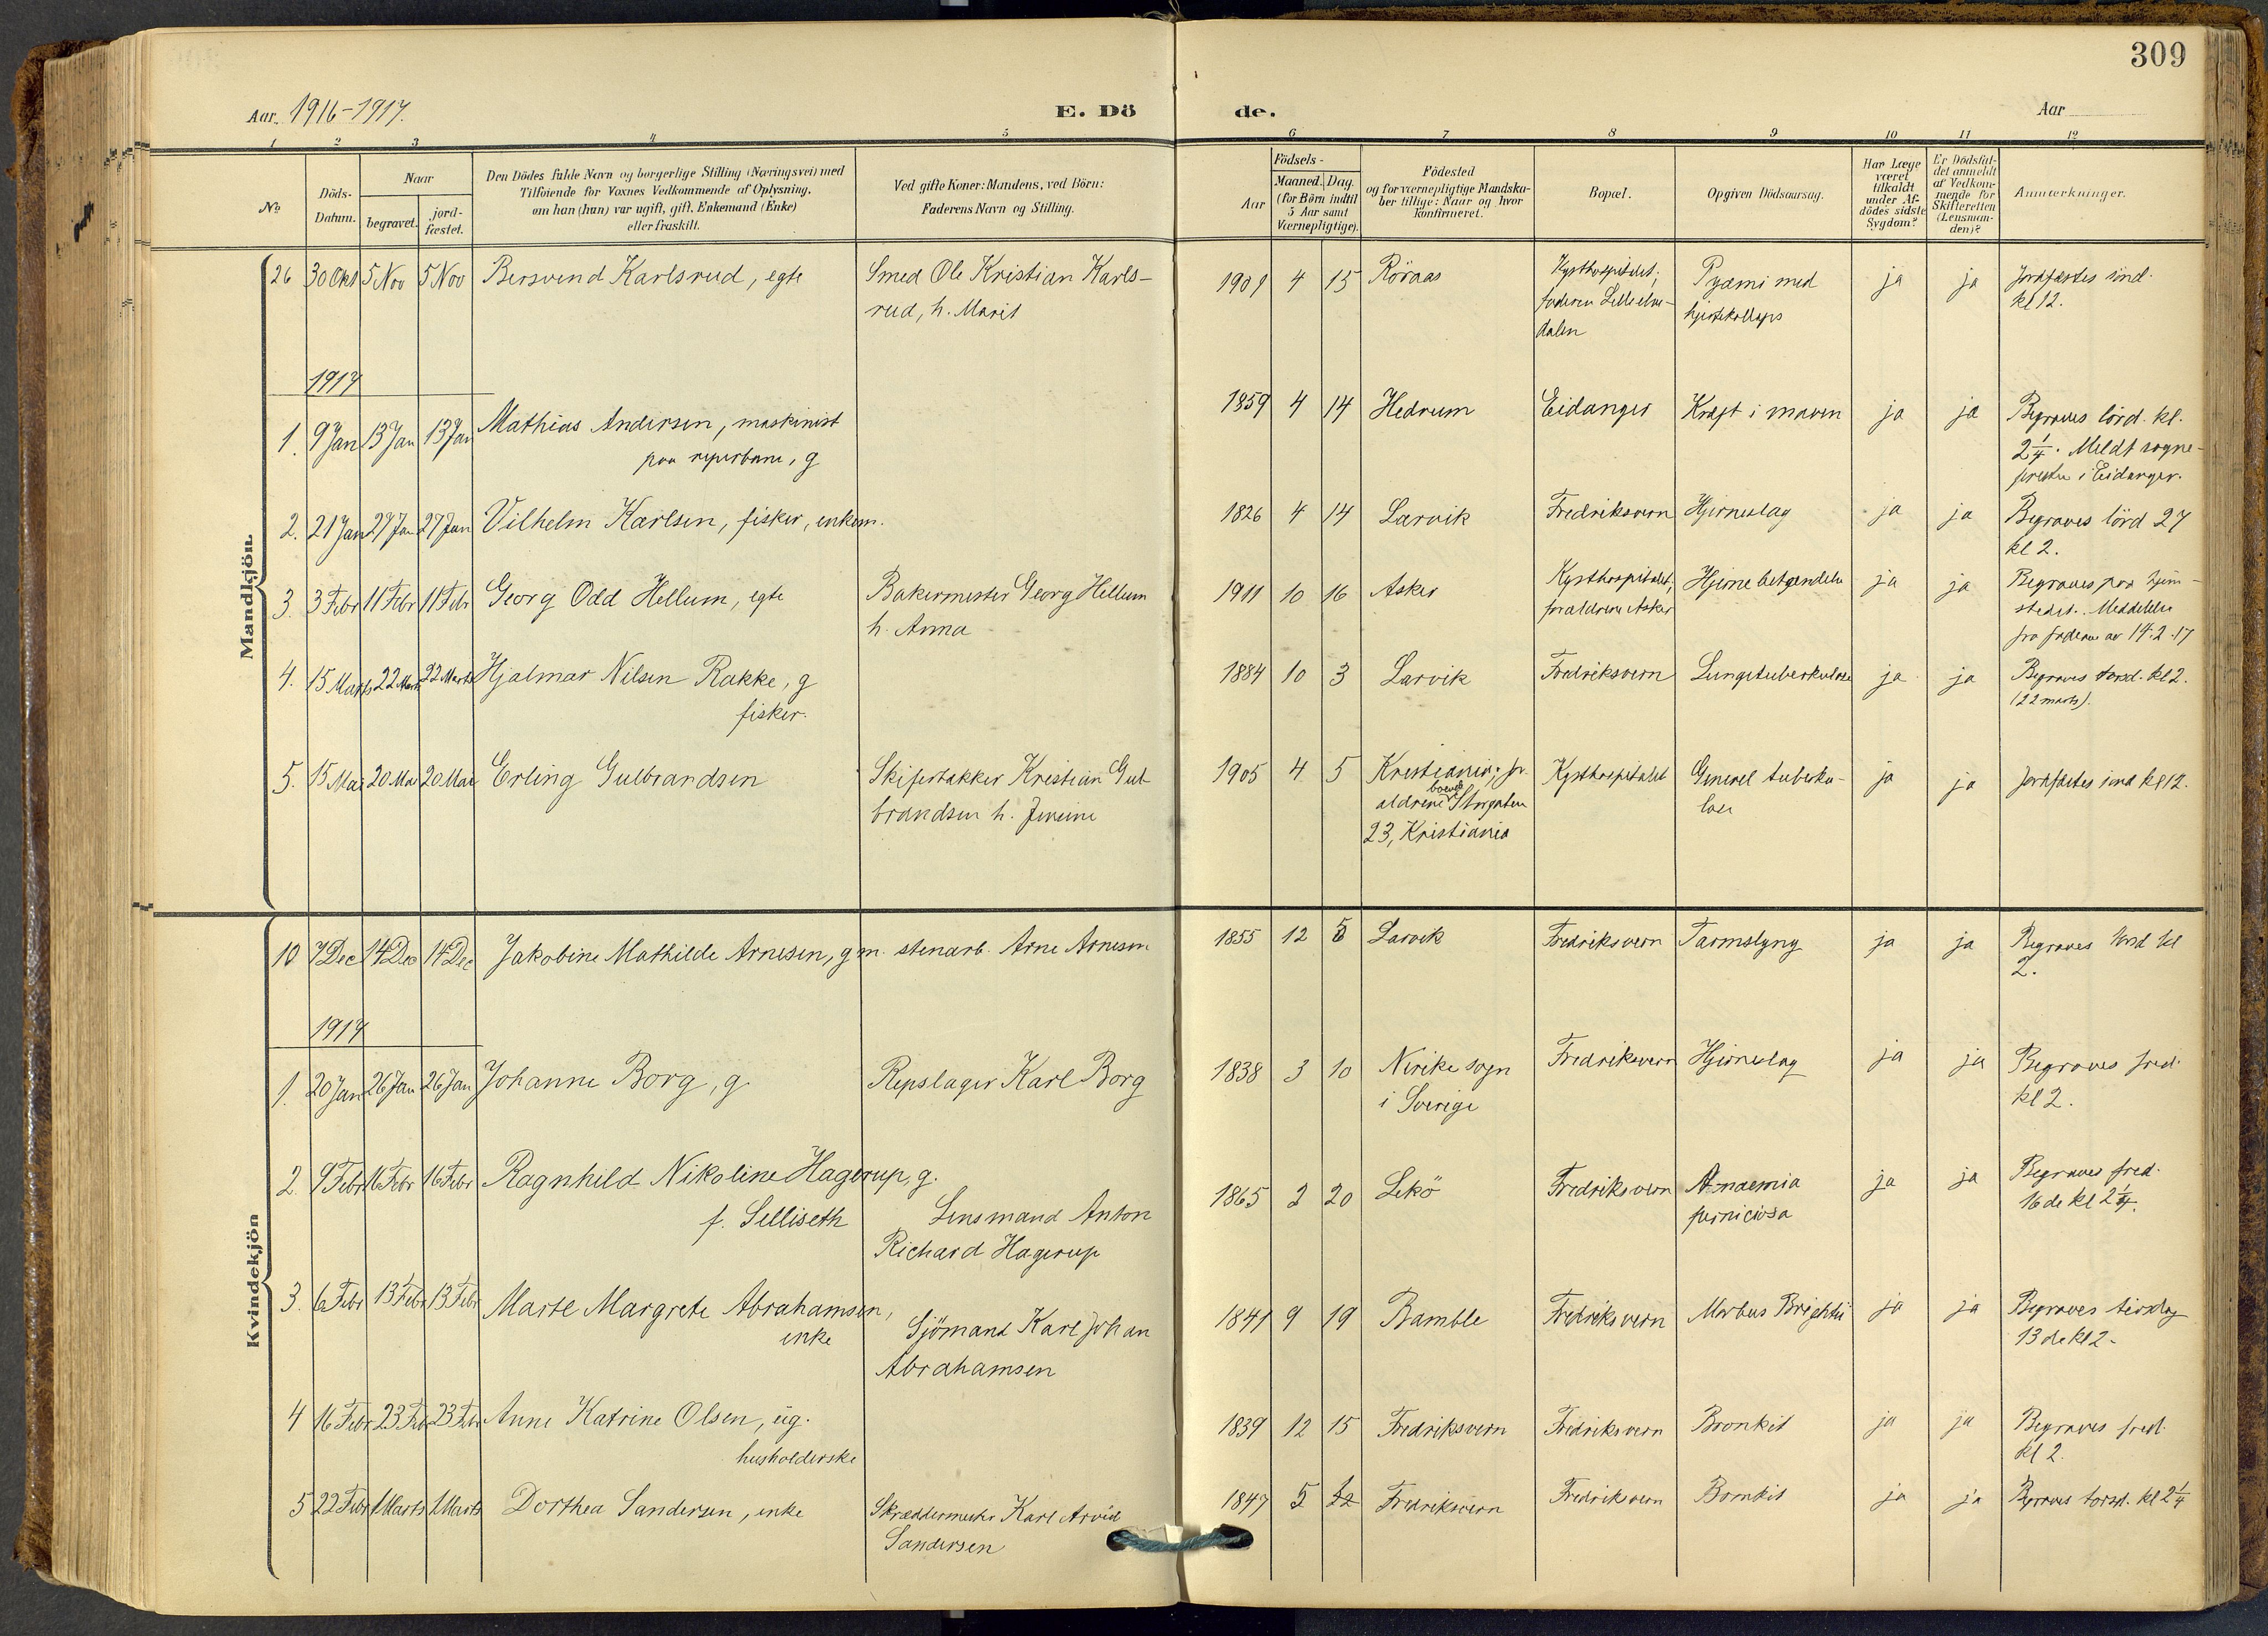 309
Aar 1916-1917.
E. Dö
de.
Aar
1 2 3 4 5 6 7 8 9 10 11 12
No
Döds-Datum.
Naar
begravet.
jord-fæstet.
Den Dödes fulde Navn og borgerlige Stilling (Næringsvei) med
Tilföiende for Voxnes Vedkommende af Oplysning,
om han (hun) var ugift, gift, Enkemand (Enke)
eller fraskilt.
Ved gifte Koner: Mandens, ved Börn:
Faderens Navn og Stilling.
Födsels-
Aar
Maaned. Dag.
(for Börn indtil
5 Aar samt
Værnepligtige).
Födested
og for værnepligtige Mandska-
ber tillige: Naar og hvor
konfirmeret.
Bopæl.
Opgiven Dödsaarsag.
Har Læge
været
tilkaldt
under Af-
dödes sidste
Sygdom?
Er Dödsfal-
det anmeldt
af Vedkom-
mende for
Skifteretten
(Lensman-
den)?
Anmærkninger.
Mandkjön.
26 30 Okt 5 Nov 5 Nov Bersvend Karlsrud, egte Smed Ole Kristian Karls- 1901 4 15 Röraas Kysthospitalet; Pyæmi med ja ja Jordfæstes sönd.
rud, h. Marit faderen Lille elve- hjertekollaps kl 12.
dalen
1917
1. 9 Jan 13 Jan 13 Jan Mathias Andersen, maskinist 1859 4 14 Hedrum Eidanger Kræft i maven ja ja Begraves lörd. kl.
paa reperbane, g 2 1/4. Meldt sogne-
presten i Eidanger.
2. 21 Jan 27 Jan 27 Jan Vilhelm Karlsen, fisker, enkem. 1826 4 14 Larvik Fredriksvern Hjerneslag ja ja Begraves lörd 27
kl 2.
3. 3 Febr 11 Febr 11 Febr Georg Odd Hellum, egte Bakermester Georg Hellum 1911 10 16 Asker Kysthospitalet; Hjernebetændelse ja ja Begraves paa hjem-
h. Anna forældrene Asker stedet. Meddelelse
fra faderen av 14.2.17
4. 15 Marts 22 Marts 22 Marts Hjalmar Nilsen Rakke, g 1884 10 3 Larvik Fredriksvern Lungetuberkulose ja ja Begraves torsd. kl 2.
fisker. (22 marts).
5. 15 Mai 20 Mai 20 Mai Erling Gulbrandsen Skifertækker Kristian Gul- 1905 4 5 Kristiania; for- Kysthospitalet Generel tuberku- ja ja Jordfæstes sönd kl 12.
brandsen h. ældrene boende Storgaten lose
23, Kristiania
Kvindekjön
10 7 Dec 14 Dec 14 Dec Jakobine Mathilde Arnesen, g m. stenarb. Arne Arnesen 1855 12 Larvik Fredriksvern Tarmslyng ja ja Begraves torsd kl
2.
1917
1. 20 Jan 26 Jan 26 Jan Johanne Borg, g. Repslager Karl Borg 1838 3 10 Nerike sogn Fredriksvern Hjerneslag ja ja Begraves fred.
i Sverige kl 2.
2. 9 Febr 16 Febr 16 Febr Ragnhild Nikoline Hagerup, g. 1865 2 20 Lekö Fredriksvern Anaemia ja ja Begraves fred.
f. Selliseth Lensmand Anton perniciosa 16de kl 2 1/4.
Richard Hagerup
3. 6 Febr 13 Febr 13 Febr Marte Margrete Abrahamsen, 1841 9 19 Bamble Fredriksvern Morbus Brightii ja ja Begraves tirsdag
enke Sjömand Karl Johan 13de kl 2.
Abrahamsen
4 16 Febr 23 Febr 23 Febr Anne Katrine Olsen, ug. 1839 12 15 Fredriksvern Fredriksvern Bronkit ja ja Begraves fred.
husholderske kl 2.
5 22 Febr 1 Marts 1 Marts Dorthea Sandersen, enke Skræddermester Karl Arvid 1847 5 12 Fredriksvern Fredriksvern Bronkit ja ja Begraves torsd. kl 2 1/4
Sandersen